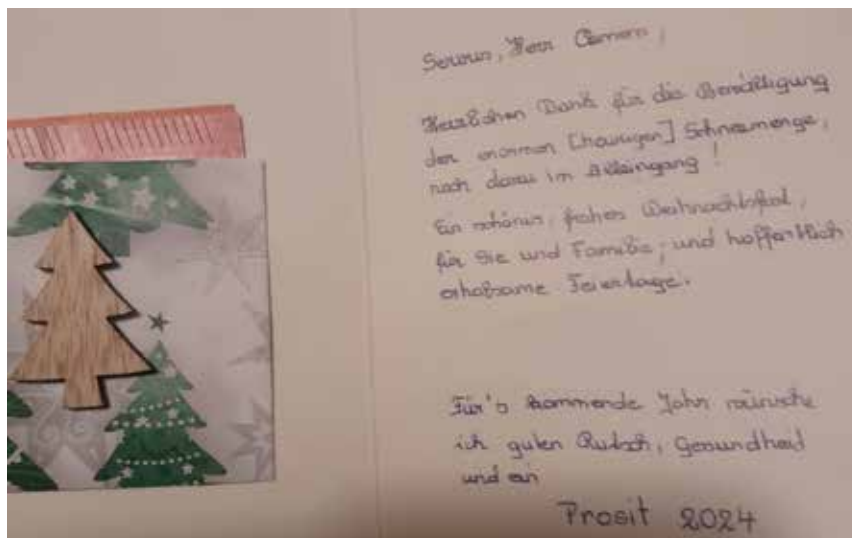 Servus, Herr
Herzlichen Dank für die Bewältigung
der enormen [haurigen] Schneemenge,
noch dazu im Alleingang!
Ein schönes, frohes Weihnachtsfest,
für Sie und Familie; und hoffentlich
erholsame Feiertage.
Für's kommende Jahr wünsche
ich guten Rutsch, Gesundheid
und ein
Prosit 2024